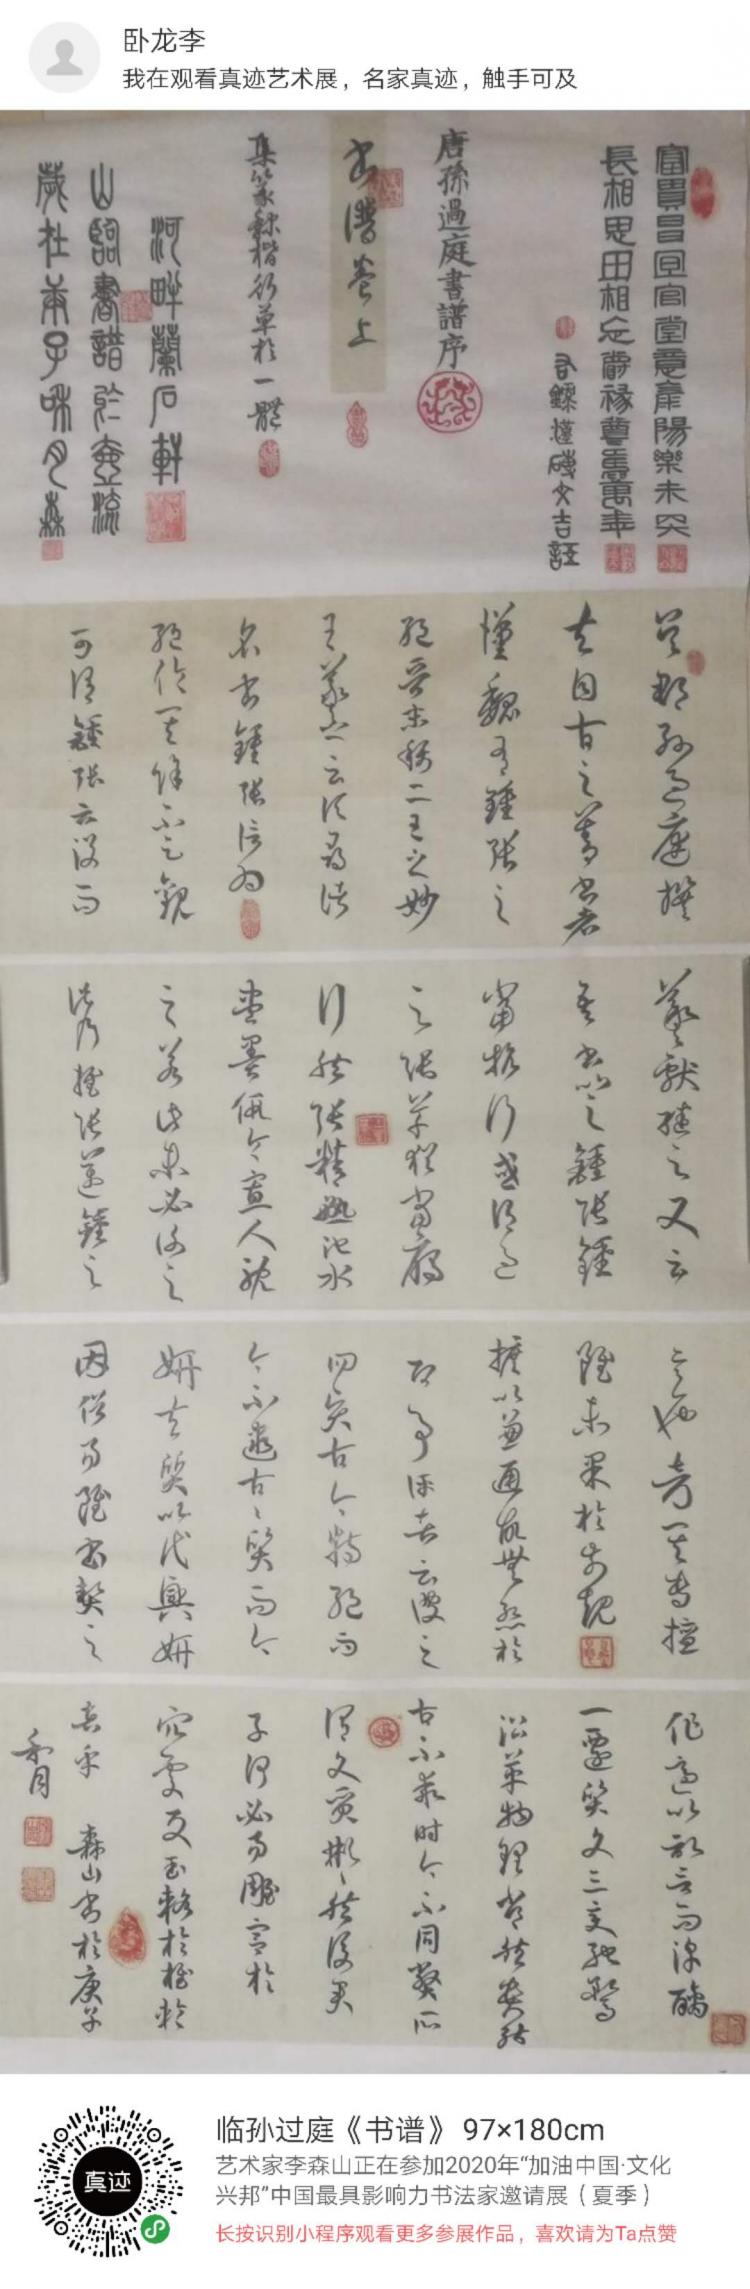 卧龙李
我在观看真迹艺术展，名家真迹，触手可及
富貴昌宜官堂意氣陽樂未央
長相思毋相忘爵禄尊壽萬年
右錄漢磚文吉語
唐孫過庭書譜序
書譜卷上
集篆隸楷行草於一體
歲在庚子秋月森
山臨書譜於壺流
河畔蘭石軒
吳郡孫過庭撰
夫自古之善書者
漢魏有鍾張之
絕晉末稱二王之妙
王羲之云頃尋諸
名書鍾張信為
絕倫其餘不足觀
可謂鍾張云沒而
羲獻繼之又云
吾書比之鍾張鍾
當抗行或謂過
之張草猶當雁
行然張精熟池水
盡墨假令寡人耽
之若此未必謝之
此乃推張邁鍾之
意也考其專擅
雖未果於前規
摭以兼通故無慚於
即事評者云彼之
四賢古今特絕而
今不逮古々質而今
妍夫質以代興妍
因俗易雖書契之
作適以記言而淳醨
一遷質文三變馳騖
沿革物理常然貴能
古不乖時今不同弊所
謂文質彬々然後君
子何必易雕宮於
穴處反玉輅於椎輪
者乎 森山書於庚子
秋月
真迹
临孙过庭《书谱》 97×180cm
艺术家李森山正在参加2020年“加油中国·文化
兴邦”中国最具影响力书法家邀请展（夏季）
长按识别小程序观看更多参展作品，喜欢请为Ta点赞